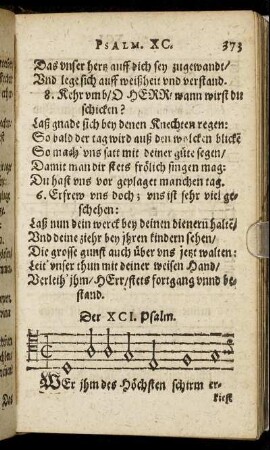 PSALM. XC. 373
Das vnser hertz auff dich sey zugewandt/
Vnd lege sich auff weißheit vnd verstand.
8. Kehr vmb/O HERR/ wann wirst du
schicken?
Laß gnade sich bey denen Knechten regen:
So bald der tag wird auß den wolcken blickē
So mach vns satt mit deiner güte segen/
Damit man dir stets frölich singen mag:
Du hast vns vor geplaget manchen tag.
6. Erfrew vns doch; vns ist sehr viel ge-
schehen:
Laß nun dein werck bey deinen dienern haltē/
Vnd deine ziehr bey jhren kindern sehen/
Die grosse gunst auch über vns jetzt walten:
Leit' vnser thun mit deiner weisen Hand/
Verleih' jhm/ HErr/ stets fortgang vnnd be-
stand.
Der XCI. Psalm.
WEr jhm des Höchsten schirm er-
kiest